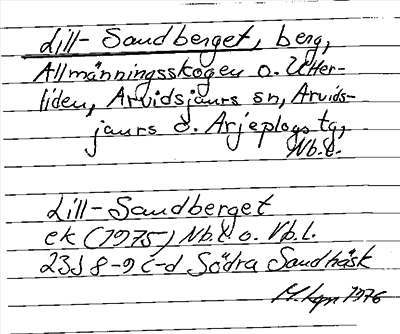 Lill-Sandberget, berg,
Allmänningsskogen o. Utter-
liden, Arvidsjaurs sn, Arvids-
jaurs o. Arjeplogs tg,
Nb.l.
Lill-Sandberget
ek (1975) Nb.l. o. Vb.l.
23J 8-9 c-d Södra Sandträsk
1976